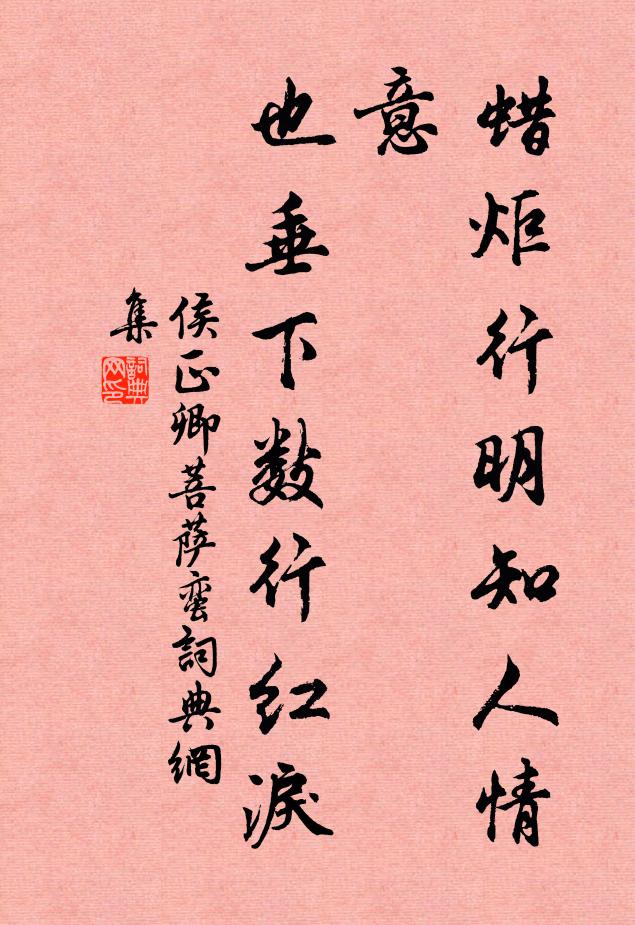 蜡炬行明知人情
意
也垂下数行红淚
侯正卿菩萨蛮詞典網
集
詞典網印